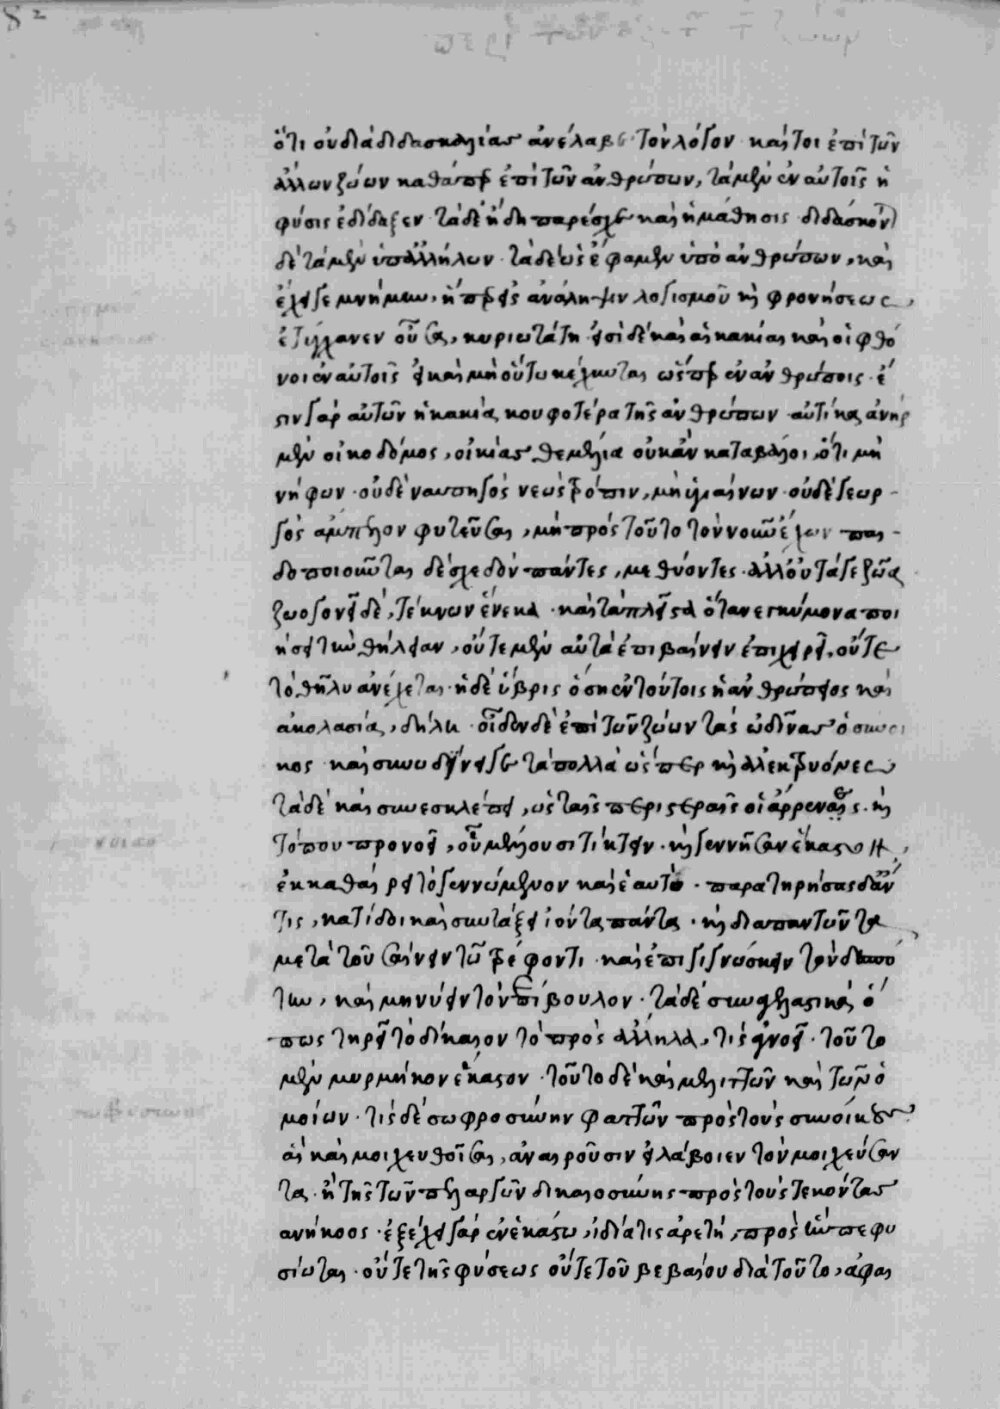 ὅτι οὐ διὰ διδασκαλίας ἀνέλαβε τὸν λόγον· καίτοι ἐπὶ τῶν
ἄλλων ζώων καθάπερ ἐπὶ τῶν ἀνθρώπων, τὰ μὲν ἐν αὐτοῖς ἡ
φύσις ἐδίδαξεν· τὰ δὲ ἤδη παρέσχε καὶ ἡ μάθησις· διδάσκονται
δὲ τὰ μὲν ὑπ' ἀλλήλων· τὰ δὲ ὡς ἔφαμεν ὑπὸ ἀνθρώπων, καὶ
ἔχει γε μνήμην, ἥπερ εἰς ἀνάληψιν λογισμοῦ καὶ φρονήσεως
ἐτύγχανεν οὖσα, κυριωτάτη· εἰσὶ δὲ καὶ αἱ κακίαι καὶ οἱ φθό
νοι ἐν αὐτοῖς εἰ καὶ μὴ οὕτω κέχυται ὥσπερ ἐν ἀνθρώποις· ἔ
στιν γὰρ αὐτῶν ἡ κακία κουφοτέρα τῆς ἀνθρώπων· αὐτίκα ἀνὴρ
μὲν οἰκοδόμος, οἰκίας θεμέλια οὐκ ἂν καταβάλοι, ὅτι μὴ
νήφων· οὐδὲ ναυπηγὸς νεὼς τρόπιν, μὴ ὑγιαίνων· οὐδὲ γεωρ
γὸς ἄμπελον φυτεῦσαι, μὴ πρὸς τοῦτο τὸν νοῦν ἔχων παι
δοποιοῦνται δὲ σχεδὸν πάντες, μεθύοντες· ἀλλ' οὐ τά γε ζῶα
ζωογονεῖ δὲ, τέκνων ἕνεκα· καὶ τὰ πλεῖστα ὅταν ἐγκύμονα ποι
ήσει τὴν θήλειαν, οὔτε μὲν αὐτὰ ἐπιβαίνειν ἐπιχειρεῖ, οὔτε
τὸ θῆλυ ἀνέχεται· ἡ δὲ ὕβρις ὅση ἐν τούτοις ἡ ἀνθρώπειος καὶ
ἀκολασία, δήλη· οἶδεν δὲ ἐπὶ τῶν ζώων τὰς ὠδῖνας ὁ σύνοι
κος· καὶ συνωδίνει γε τὰ πολλὰ ὥσπερ καὶ ἀλεκτρυόνες
τὰ δὲ καὶ συνεκλέπει, ὡς ταῖς περιστεραῖς οἱ ἄρρενες· καὶ
τόπου προνοεῖ, οὗ μέλλουσι τίκτειν· καὶ γεννῆσαν ἕκαστον
ἐκκαθαίρει τὸ γεννώμενον καὶ ἑαυτό· παρατηρήσας δ' ἄν
τις, κατίδοι καὶ σὺν τάξει ἰόντα πάντα· καὶ διαπαντῶντα
μετὰ τοῦ σαίνειν τῶ τρέφοντι· καὶ ἐπιγιγνώσκειν τὸν δεσπό
την, καὶ μηνύειν τὸν ἐπίβουλον· τὰ δὲ συναγελαστικὰ ὅ
πως τηρεῖ τὸ δίκαιον τὸ πρὸς ἄλληλα, τίς ἀγνοεῖ· τοῦτο
μὲν μυρμήκων ἕκαστον· τοῦτο δὲ καὶ μελιττῶν καὶ τῶν ὁ
μοίων· τίς δὲ σωφροσύνην φαττῶν πρὸς τοὺς συνοίκους
αἳ καὶ μοιχευθεῖσαι, ἀναιροῦσιν εἰ λάβοιεν τὸν μοιχεύσαν
τα· ἢ τῆς τῶν πελαργῶν δικαιοσύνης πρὸς τοὺς τεκόντας
ἀνήκοος· ἐξέχει γὰρ ἐν ἑκάστω, ἰδία τις ἀρετή, πρὸς ἣν πεφυ
σίωται· οὔτε τῆς φύσεως οὔτε τοῦ βεβαίου διὰ τοῦτο, ἀφαι